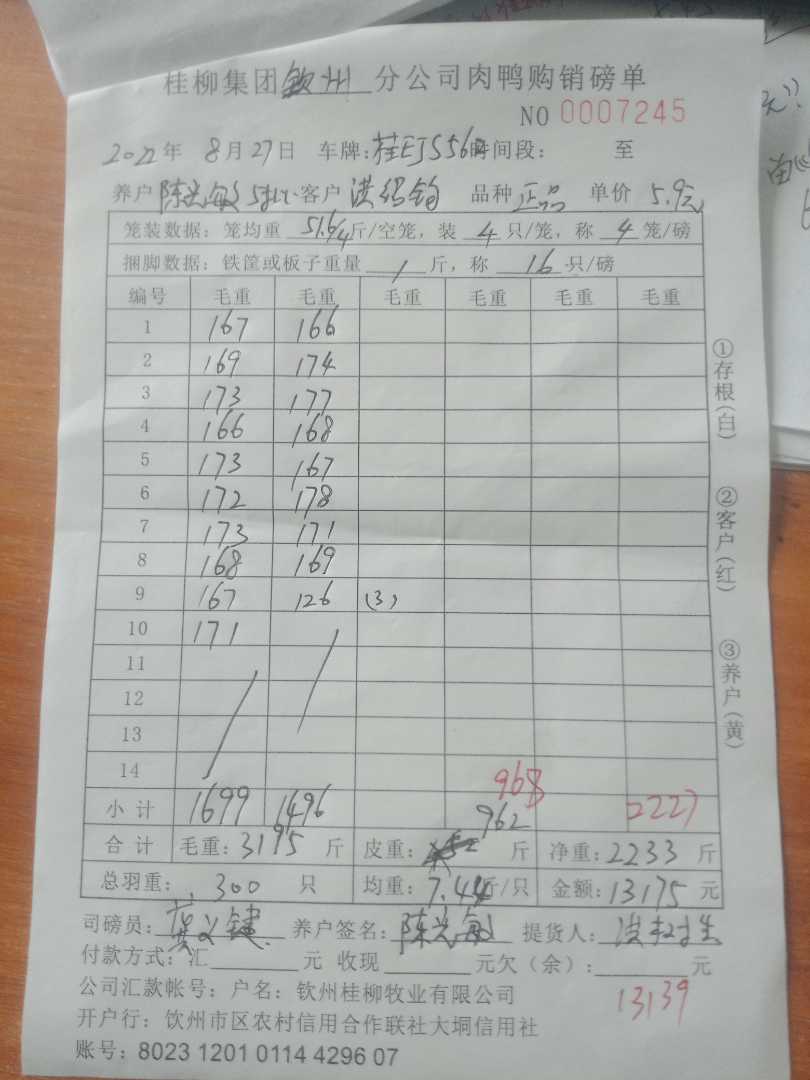 桂柳集团钦州分公司肉鸭购销磅单
NO 0007245
2022年 8月27日 车牌:桂EJS56 时间段: 至
养户 陈光敏 客户 洪绍钧 品种 正品 单价 5.9元
笼装数据:笼均重 51.6/4 斤/空笼,装 4 只/笼,称 4 笼/磅
捆脚数据:铁筐或板子重量 / 斤,称 16 只/磅
编号 毛重 毛重 毛重 毛重 毛重 毛重
1 167 166
2 169 174
3 173 177
4 166 168
5 173 167
6 172 178
7 173 171
8 168 169
9 167 126 (3)
10 171
11
12
13
14
968
小计 1699 1496 962 2227
合计 毛重:3195 斤 皮重: 斤 净重:2233 斤
总羽重: 300 只 均重:7.44斤/只 金额:13175 元
司磅员: 义键 养户签名:陈光敏 提货人:
付款方式:汇 元 收现 元欠(余): 元
13139
公司汇款帐号:户名:钦州桂柳牧业有限公司
开户行:饮州市区农村信用合作联社大垌信用社
账号:8023 1201 0114 4296 07
①存根(白) ②客户(红) ③养户(黄)